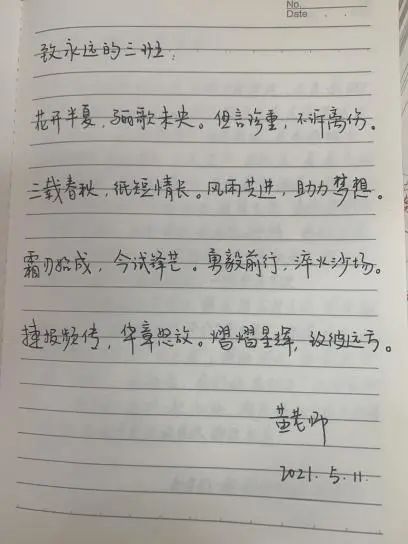 No.
Date
致永远的三班：
花开半夏，骊歌未央。但言珍重，不诉离伤。
三载春秋，纸短情长。风雨共进，助力梦想。
霜刃始成，今试锋芒。勇毅前行，淬火沙场。
捷报频传，华章怒放。熠熠星辉，致彼远方。
黄老师
2021.5.11.